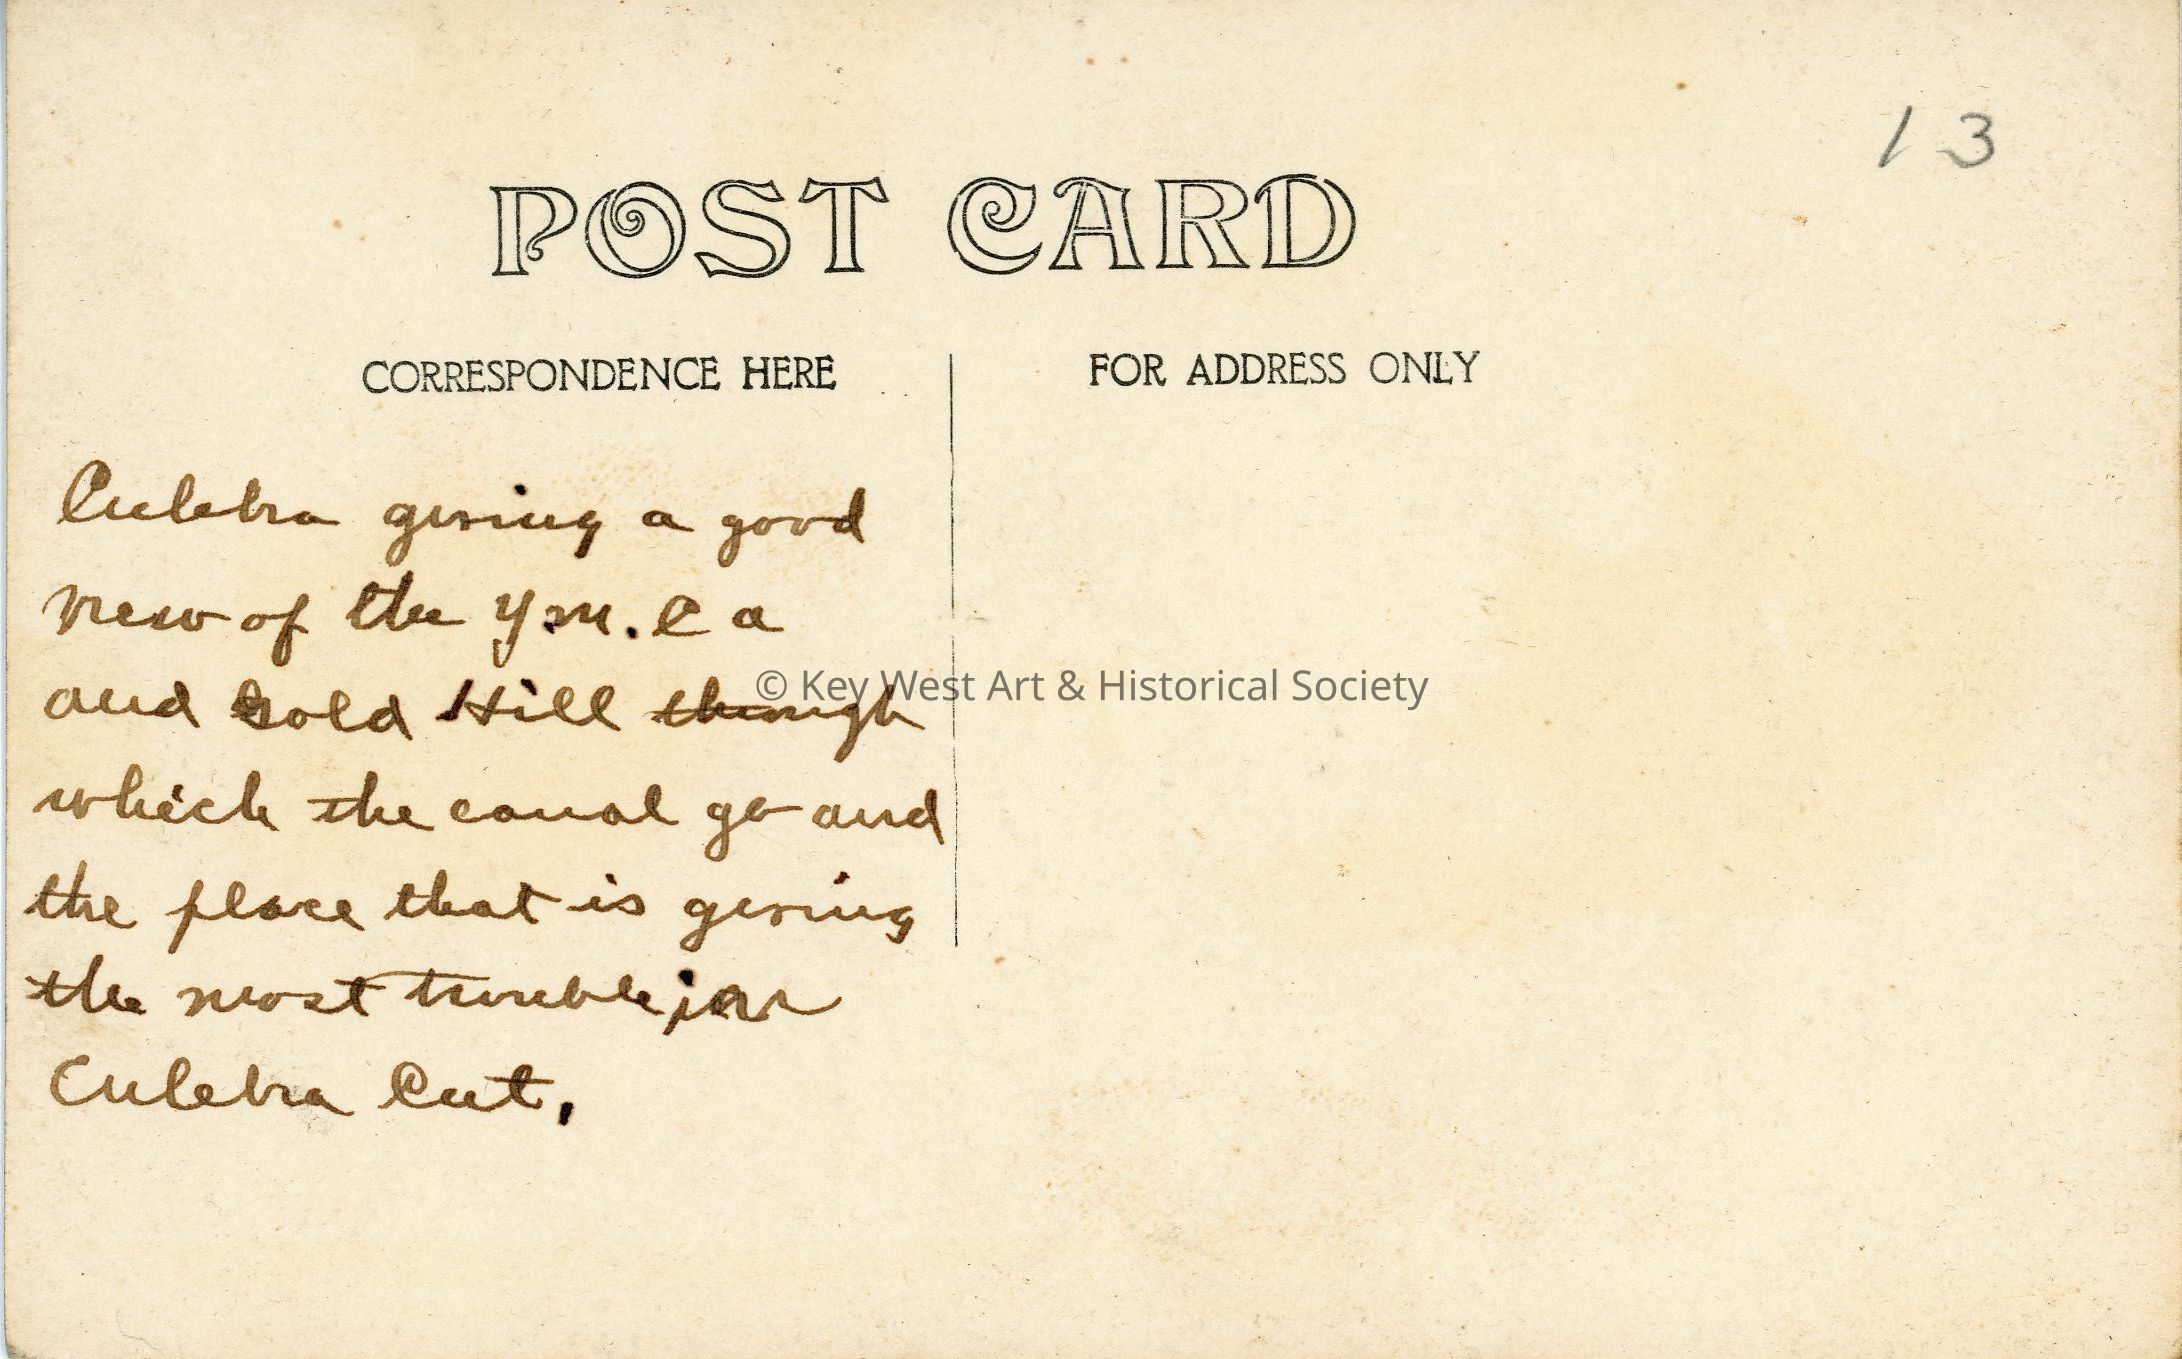 13
POST CARD
CORRESPONDENCE HERE
FOR ADDRESS ONLY
Culebra giving a good
view of the Y.M.C a
and Gold Hill through
which the canal go and
the place that is giving
the most trouble,
Culebra Cut.
© Key West Art & Historical Society